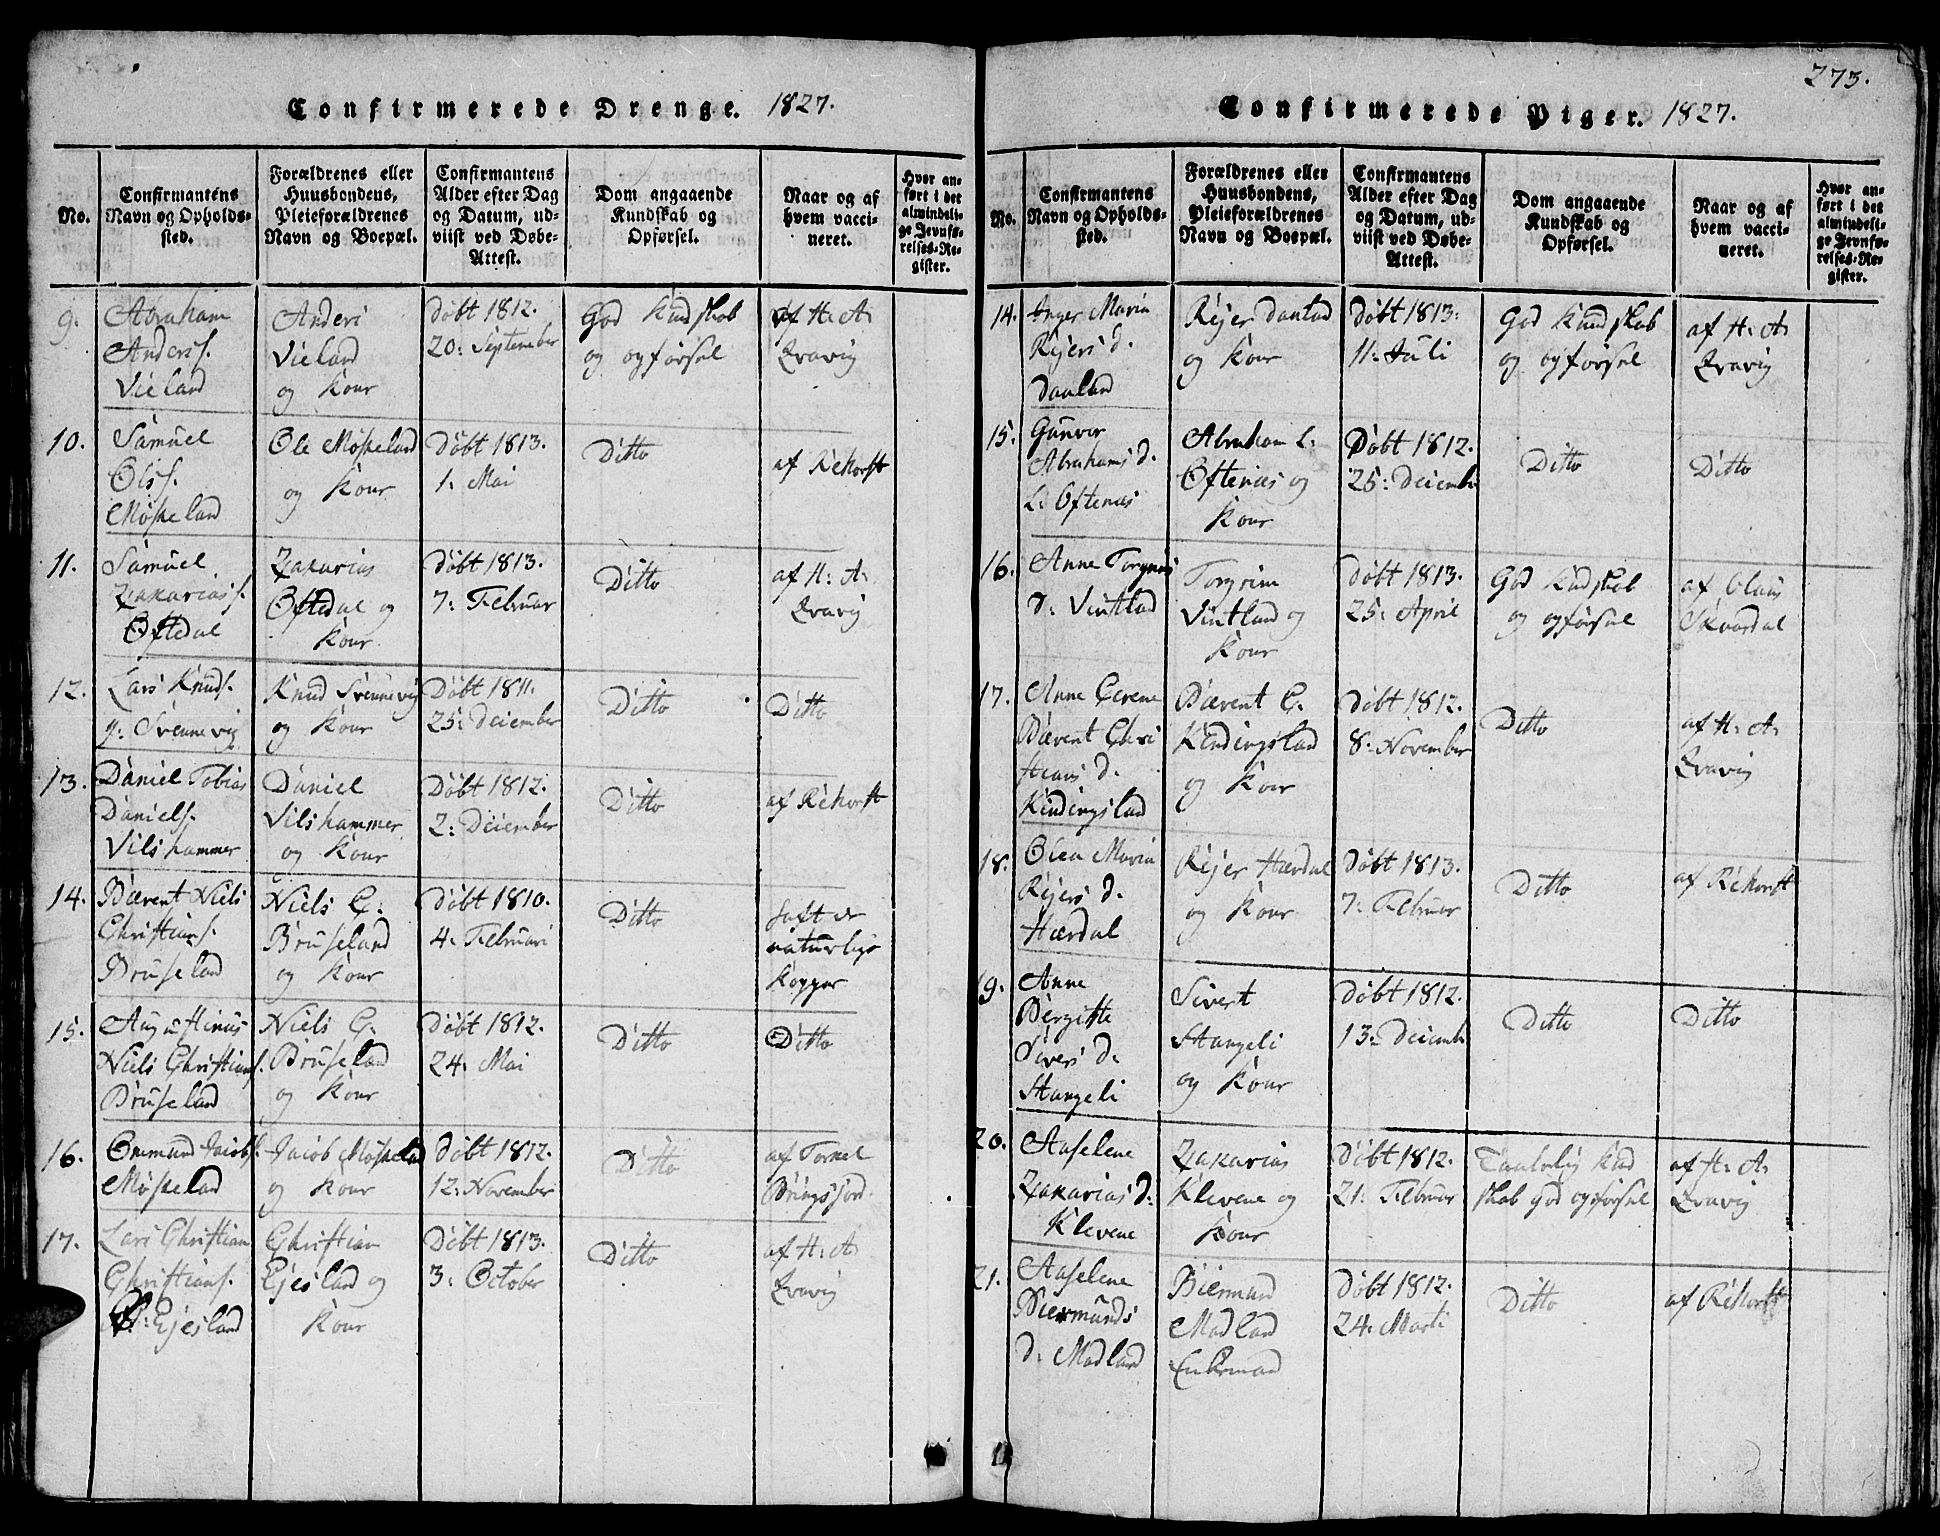 Confirmerede Drenge. 1827.
No.
Confirmantens
Navn og Opholds-
sted.
Forældrenes eller
Huusbondens,
Pleieforældrenes
Navn og Boepæl.
Confirmantens
Alder efter Dag
og Datum, ud-
viist ved Døbe-
Attest.
Dom angaaende
Kundskab og
Opførsel.
Naar og af
hvem vacci-
neret.
Hvor an-
ført i det
almindeli-
ge Jevnfø-
relses-Re-
gister.
9.
Abraham
Anders.
Vieland
Anders
Vieland
og Kone
Døbt 1812.
20: September
God Kundskab
og opførsel
af H: A:
Eravig
10.
Samuel
Ols.
Møskeland
Ole Møskeland
og Kone
Døbt 1813.
1. Mai
Ditto
af Rehorst
11.
Samuel
Zakarias.
Øftedal
Zakarias
Øftedal og
Kone
Døbt 1813.
7: Februar
Ditto
af H: A:
Eravig
12.
Lars Knuds.
y: Svennevig
Knud Svennevig
og Kone
Døbt 1811.
25: December
Ditto
Ditto
13.
Daniel Tobias
Daniels.
Vilshammer
Daniel
Vilshammer
og Kone
Døbt 1812.
2: December
Ditto
af Rehorst
14.
Bærent Niels
Christians.
Bruseland
Niels C:
Bruseland
og Kone
Døbt 1810.
4. Februari
Ditto
haft de
naturlige
Kopper
15.
Augustinus
Niels Christians.
Bruseland
Niels C.
Bruseland
og Kone
Døbt 1812.
24. Mai
Ditto
Ditto
16.
Ommund Jacobs.
Møskeland
Jacob Møskeland
og Kone
Døbt 1812.
12: November
Ditto
af Torkel
Bringsjord
17.
Lars Christian
Christians.
Ejesland
Christian
Ejesland og
Kone
Døbt 1813.
3: October
Ditto
af H: A:
Eravig
273.
Confirmerede Piger. 1827.
No.
Confirmantens
Navn og Opholds-
sted.
Forældrenes eller
Huusbondens,
Pleieforældrenes
Navn og Boepæl.
Confirmantens
Alder efter Dag
og Datum, ud-
viist ved Døbe-
Attest.
Dom angaaende
Kundskab og
Opførsel.
Naar og af
hvem vacci-
neret.
Hvor an-
ført i det
almindeli-
ge Jevnfø-
relses-Re-
gister.
14.
Inger Maria
Rejers d.
Danland
Rejer Danland
og Kone
Døbt 1813:
11: Juli
God Kundskab
og opførsel
af H: A:
Eravig
15.
Gunver
Abrahams d.
L: Øftenæs
Abraham L:
Øftenæs og
Kone
Døbt 1812.
25: Decemb
Ditto
Ditto
16.
Anne Torgrims
d: Vintland
Torgrim
Vintland og
Kone
Døbt 1813.
25: April
God Kundskab
og opførsel
af Olaus
Skuardal
17.
Anne Cerene
Bærent Chri
stians d.
Kindingsland
Bærent C.
Kindingsland
og Kone
Døbt 1812.
8. November
Ditto
af H: A:
Eravig
18.
Olea Maria
Rejers d.
Hærdal
Rejer Hærdal
og Kone
Døbt 1813.
7: Februar
Ditto
af Rehorst
19.
Anne
Bergitte
Sivers d.
Stangeli
Sivert
Stangeli
og Kone
Døbt 1812.
13: Decemb
Ditto
Ditto
20.
Aaselene
Zakarias d:
Klevene
Zakarias
Klevene og
Kone
Døbt 1812.
21: Februar
Taalelig Kund
skab god opførsel
af H: A:
Eravig
21.
Aaselene
Biermunds
d: Modland
Biermund
Modland
Enkemand
Døbt 1812.
24. Marti
Ditto
af Rehorst